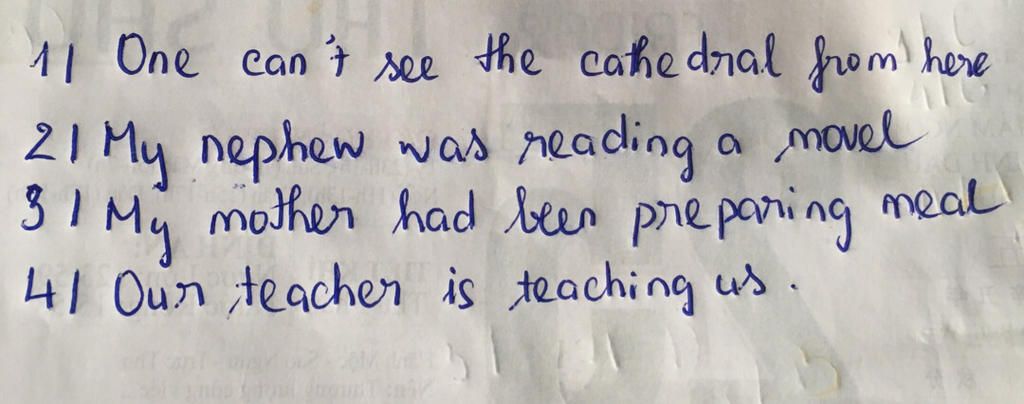 1) One can't see the cathedral from here
2) My nephew was reading a novel
3) My mother had been preparing meal
4) Our teacher is teaching us.